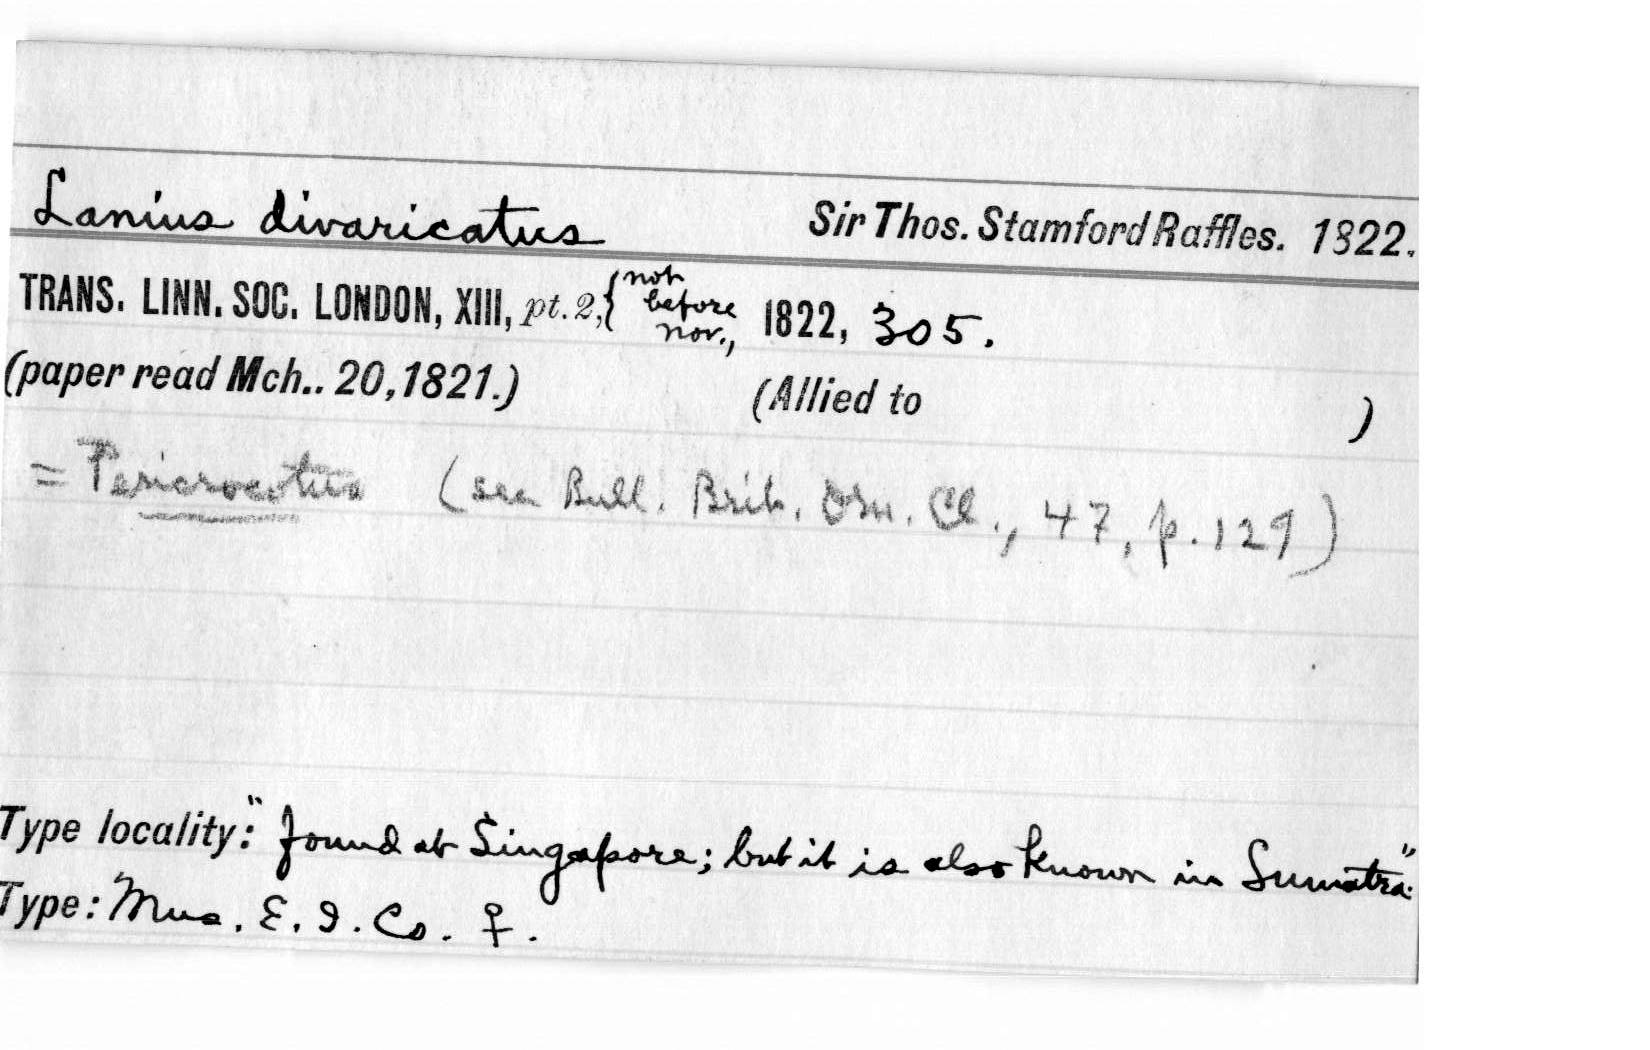 Lanius divaricatus Sir Thos. Stamford Raffles. 1822.
TRANS. LINN. SOC. LONDON, XIII, pt. 2, { not before nov., 1822, 305.
(paper read Mch.. 20, 1821.) (Allied to )
= Pericrocotus (see Bull. Brit. Orn. Cl., 47, p. 129)
Type locality: "found at Singapore; but it is also known in Sumatra."
Type: "Mus. E. I. Co. ♀.